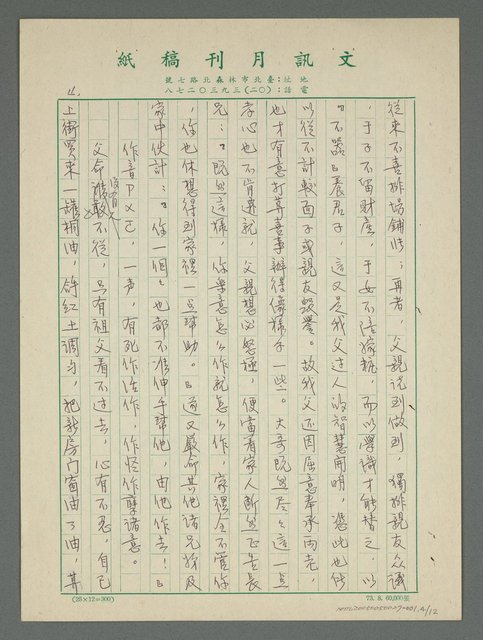 文訊月刊稿紙
地址:臺北市林森北路七號
電話:(〇二)三九三〇二七八
從來不喜排場鋪張;再者,父親說到做到,獨排親友眾議
,于子不留財產,于女不陪嫁粧,而以學識才能替之,以
『不器』養君子,這又是我父過人的智慧開明,憑此也可
以從不計較面子或親友毀譽。故我父還因屈意奉承兩老,
也才有意打算喜事辦得像樣子一些。大哥既然盡這一点
孝心也不肯遷就,父親想必怒極,便當着家人斷然正告長
兄:『既然這樣,你樂意怎么作就怎么作,家裡全不管你
,你也休想得到家裡一点幫助。』遂又嚴命其他諸兄嫂及
家中伙計:『你一個。也都不准伸手幫他,由他作去!』
作音ㄗㄨㄛ,一声,有死作活作,作怪作孽諸意。
父命誰敢不從,只有祖父看不過去,心有不忍,自己
上街買來一罐桐油,研紅土調勻,把新房門窗油了油,算
(25×12=300)
73. 8. 60,000張
4/12